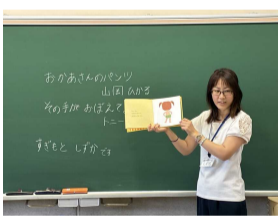 おかあさんのパンツ
山岡ひかる
その手が おぼえて
トニー
すぎもと しずかです